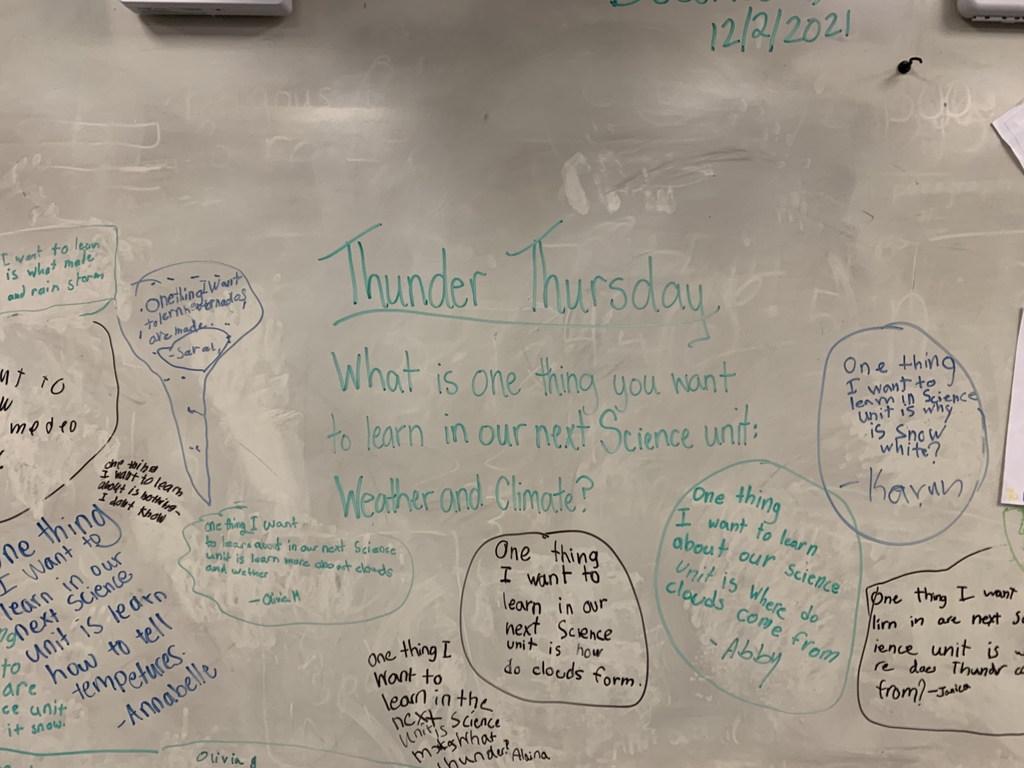 12/2/2021
Thunder Thursday
What is one thing you want
to learn in our next Science unit:
Weather and Climate?
I want to learn
is what made
and rain storm
One thing I want
to lern how tornadas
are made.
- Sarah
medeo
one thing
I want to learn
about is nothing-
I dont know
one thing I want
to learn about in our next Science
unit is learn more about clouds
and wether
- Olivia M
one thing
I want to
learn in our
next science
unit is learn
how to tell
tempetures.
-Annabelle
to
are
ce unit
it snow.
Olivia
one thing I
want to
learn in the
next Science
unit is
What
thunder? Alaina
One thing
I want to
learn in our
next Science
unit is how
do clouds form.
One thing
I want to learn
about our science
unit is where do
clouds come from
- Abby
One thing
I want to
learn in Science
unit is why
is snow
white?
- Karun
One thing I want
lirn in are next Sc
ience unit is w
re does Thundr
from? -